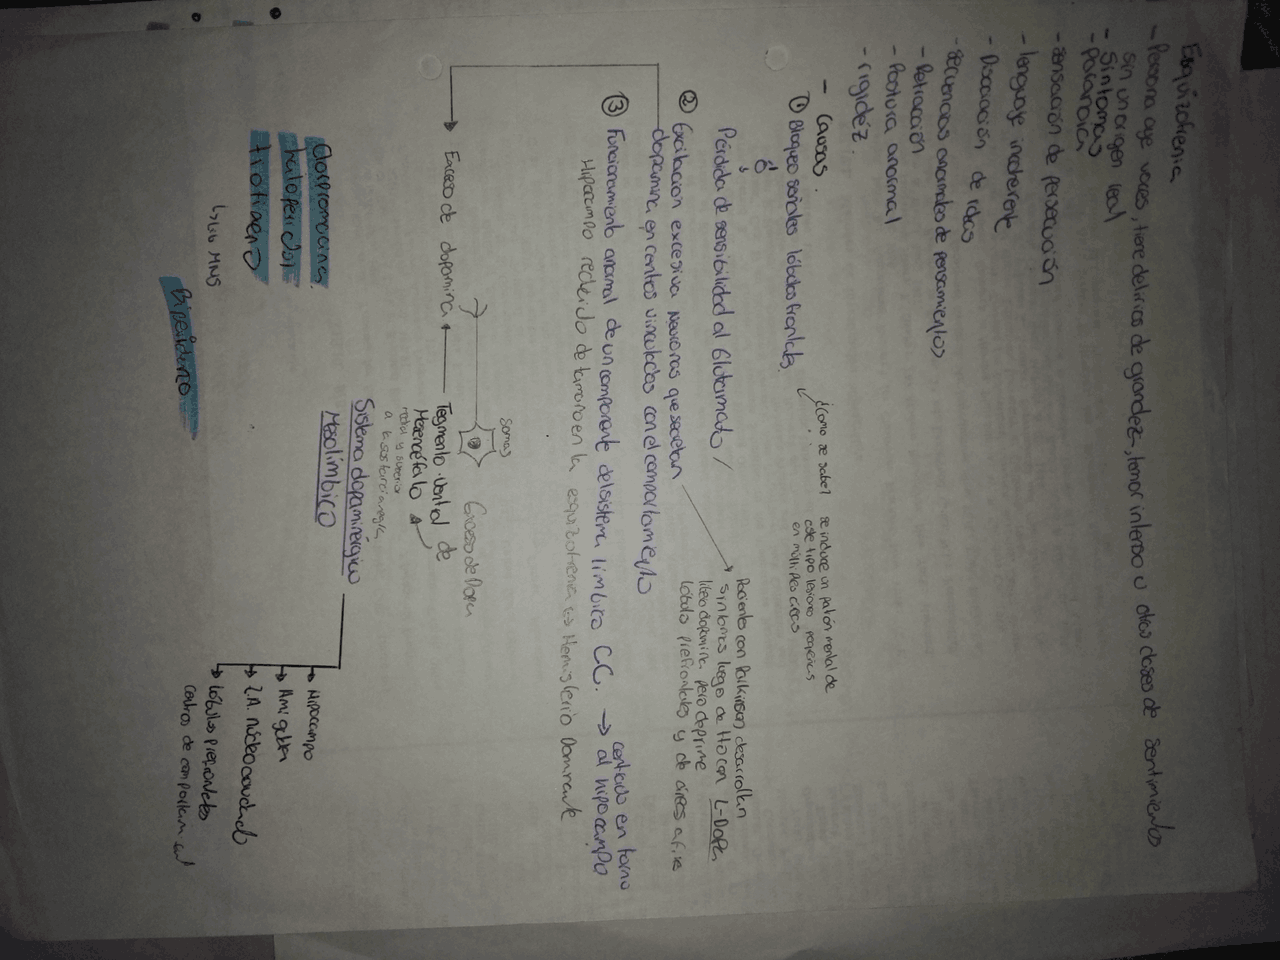 Esquizofrenia
- Persona oye voces, tiene delirios de grandeza, temor intenso u otras clases de sentimientos
sin un origen real
- Síntomas
- Paranoica
- sensación de persecución
- lenguaje incoherente
- Disociación de ideas
- secuencias anormales de pensamientos
- Retracción
- Postura anormal
- rigidéz.
- Causas.
① Bloqueo señales lóbulos frontales.
¿Cómo se sabe?
se induce un patrón mental de
este tipo lesiones pequeñas
en múltiples áreas
ó
Pérdida de sensibilidad al Glutamato /
② Excitación excesiva Neuronas que secretan
dopamina en centros vinculados con el comportamiento
Pacientes con Parkinson desarrollan
síntomas luego de tto con L-Dopa
libera dopamina pero deprime
lóbulo prefrontales y de áreas afine
③ Funcionamiento anormal de un componente del sistema límbico CC. → centrado en torno
al hipocampo
Hipocampo reducido de tamaño en la esquizofrenia en Hemisferio Dominante
Exceso de dopamina
Somas
Exceso de Dopa
Tegmento ventral de
Mesencéfalo
medial y superior
a la sustancia negra
Sistema dopaminérgico
Mesolímbico
→ Hipocampo
→ Amígdala
→ Z.A. núcleo caudado
→ lóbulos prefrontales
centros de comportam
Clorpromacina
haloperidol
tiotixeno
Biperideno